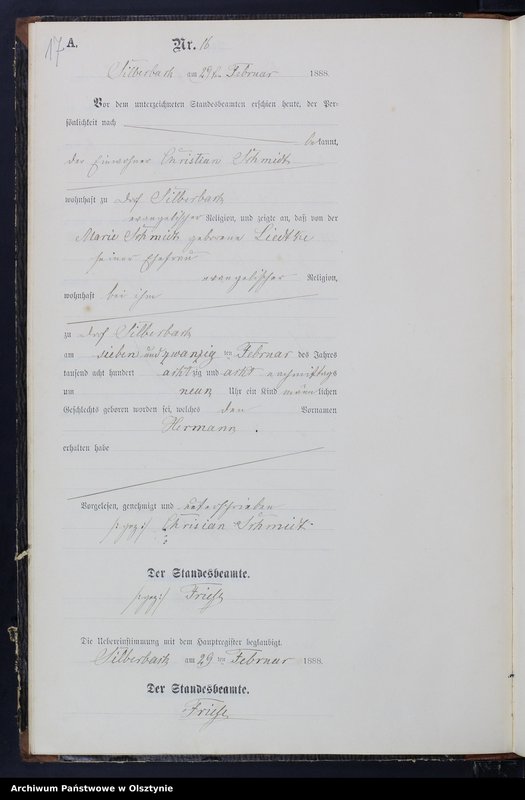 17
A. Nr. 16
Silberbach am 29ten Februar 1888.
Vor dem unterzeichneten Standesbeamten erschien heute, der Per-
sönlichkeit nach
bekannt,
der Einwohner Christian Schmidt
wohnhaft zu Dorf Silberbach
evangelischer Religion, und zeigte an, daß von der
Marie Schmidt geborene Liedtke
seiner Ehefrau
evangelischer Religion,
wohnhaft bei ihm
zu Dorf Silberbach
am sieben und zwanzig ten Februar des Jahres
tausend acht hundert achtzig und acht nachmittags
um neun Uhr ein Kind männlichen
Geschlechts geboren worden sei, welches den Vornamen
Hermann.
erhalten habe
Vorgelesen, genehmigt und unterschrieben
(: gez :) Chrisian Schmidt
Der Standesbeamte.
(: gez :) Friese
Die Uebereinstimmung mit dem Hauptregister beglaubigt.
Silberbach am 29 ten Februar 1888.
Der Standesbeamte.
Friese
Archiwum Państwowe w Olsztynie